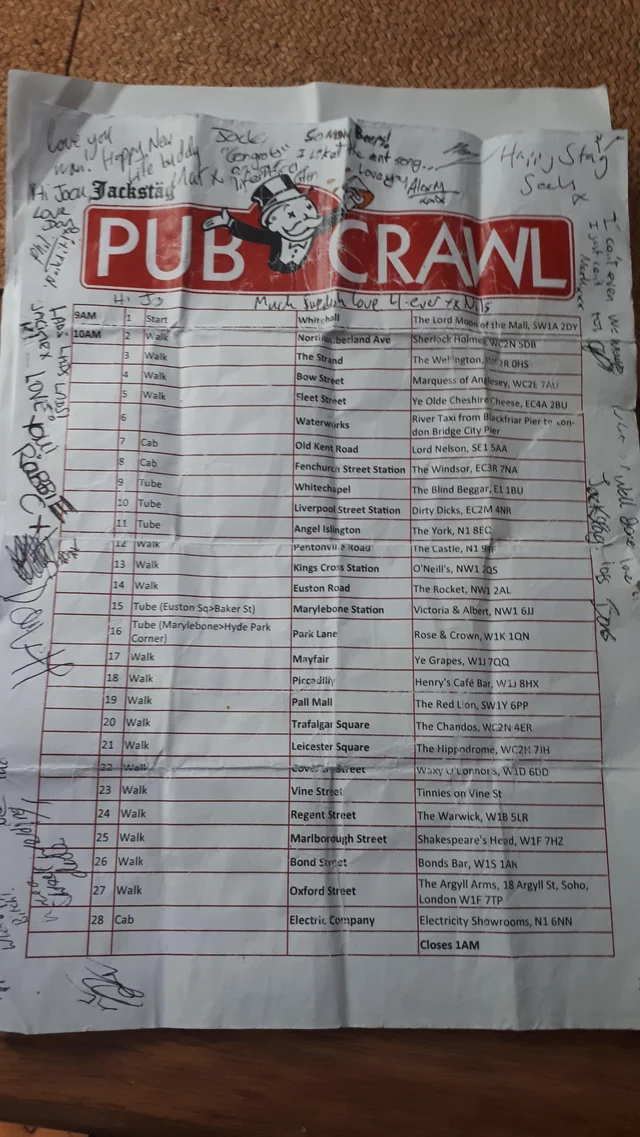 Love you
man! Happy New
life buddy
Mat x
Jack
"Congrats"
So Many Beers!
I liket the ant song...
Love you
Alex M
Happy Stag
Hi Jack
Love
Phil
Jackstäg
PUB CRAWL
Much Swedish love 4-ever xx Nils
9AM 1 Start Whitehall The Lord Moon of the Mall, SW1A 2DY
10AM 2 Walk Northumberland Ave Sherlock Holmes WC2N 5DB
3 Walk The Strand The Wellington, WC2R 0HS
4 Walk Bow Street Marquess of Anglesey, WC2E 7AU
5 Walk Fleet Street Ye Olde Cheshire Cheese, EC4A 2BU
6 Waterworks River Taxi from Blackfriar Pier to Lon-
don Bridge City Pier
7 Cab Old Kent Road Lord Nelson, SE1 5AA
8 Cab Fenchurch Street Station The Windsor, EC3R 7NA
9 Tube Whitechapel The Blind Beggar, E1 1BU
10 Tube Liverpool Street Station Dirty Dicks, EC2M 4NR
11 Tube Angel Islington The York, N1 8EC
12 Walk Pentonville Road The Castle, N1
13 Walk Kings Cross Station O'Neill's, NW1 2QS
14 Walk Euston Road The Rocket, NW1 2AL
15 Tube (Euston Sq>Baker St) Marylebone Station Victoria & Albert, NW1 6JJ
16 Tube (Marylebone>Hyde Park
Corner) Park Lane Rose & Crown, W1K 1QN
17 Walk Mayfair Ye Grapes, W1J 7QQ
18 Walk Piccadilly Henry's Café Bar, W1J 8HX
19 Walk Pall Mall The Red Lion, SW1Y 6PP
20 Walk Trafalgar Square The Chandos, WC2N 4ER
21 Walk Leicester Square The Hippodrome, WC2H 7JH
22 Walk Coventry Street Waxy O'Connor's, W1D 6DD
23 Walk Vine Street Tinnies on Vine St
24 Walk Regent Street The Warwick, W1B 5LR
25 Walk Marlborough Street Shakespeare's Head, W1F 7HZ
26 Walk Bond Street Bonds Bar, W1S 1AR
27 Walk Oxford Street The Argyll Arms, 18 Argyll St, Soho,
London W1F 7TP
28 Cab Electric Company Electricity Showrooms, N1 6NN
Closes 1AM
I can't even
I just can't
LOVE YOU!
ROBBIE